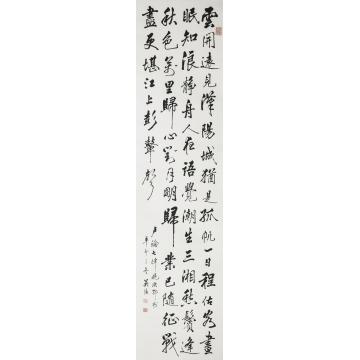 雲開遠見漢陽城猶是孤帆一日程估客晝
眠知浪静舟人夜語覺潮生三湘愁鬢逢
秋色萬里歸心對月明歸業已隨征戰
盡更堪江上鼓鼙聲
卢綸七律晚次鄂州